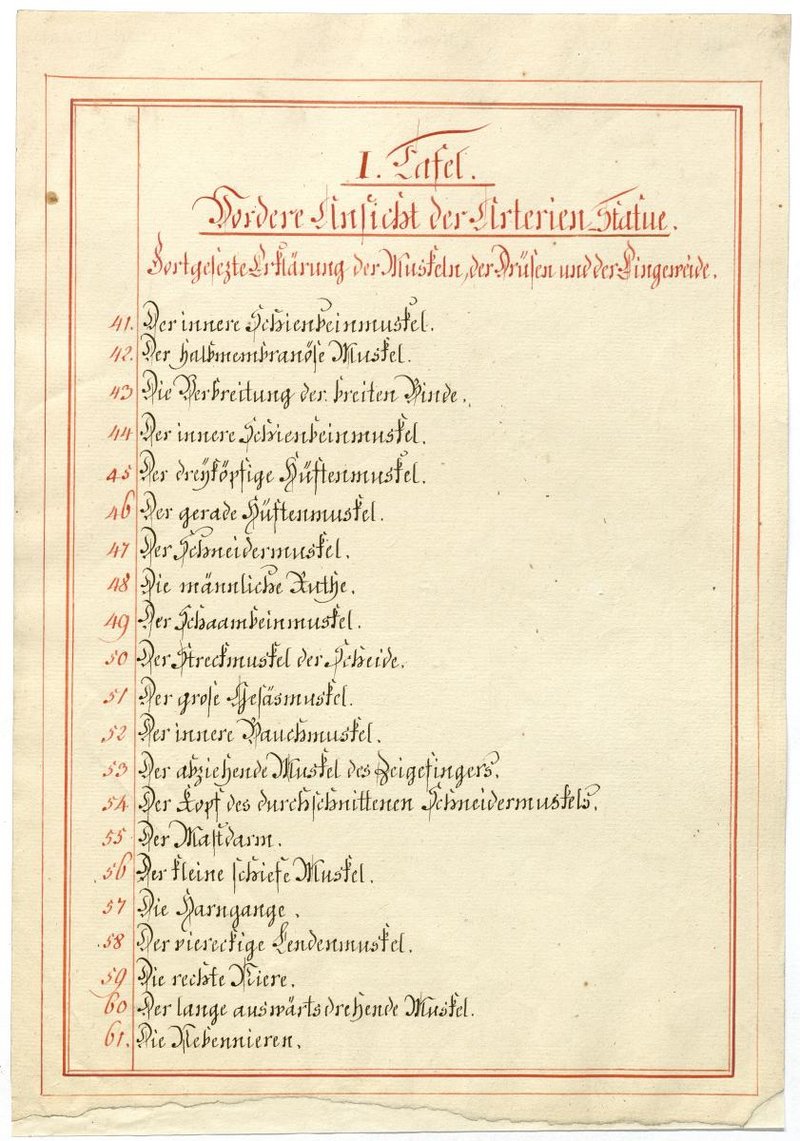 I. Tafel.
Vordere Ansicht der Arterien Statue.
Fortgesezte Erklärung der Muskeln, der Drüsen und der Eingeweide.
41. Der innere Schienbeinmuskel.
42. Der halbmembranöse Muskel.
43 Die Verbreitung der breiten Binde.
44 Der innere Schienbeinmuskel.
45 Der dreÿköpfige Hüftenmuskel.
46 Der gerade Hüftenmuskel.
47 Der Schneidermuskel.
48 Die männliche Ruthe.
49 Der Schaambeinmuskel.
50 Der Streckmuskel der Scheide.
51 Der grose Gesäsmuskel.
52 Der innere Bauchmuskel.
53 Der abziehende Muskel des Zeigefingers.
54 Der Kopf des durchschnittenen Schneidermuskels.
55 Der Mastdarm.
56 Der kleine schiefe Muskel.
57 Die Harngange.
58 Der viereckige Lendenmuskel.
59 Die rechte Niere.
60 Der lange auswärtsdrehende Muskel.
61. Die Nebennieren.